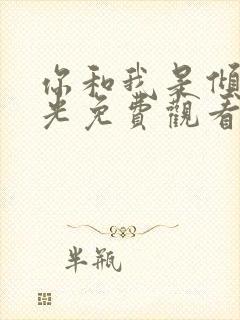 你和我杲傾
光免費觀看
半瓶